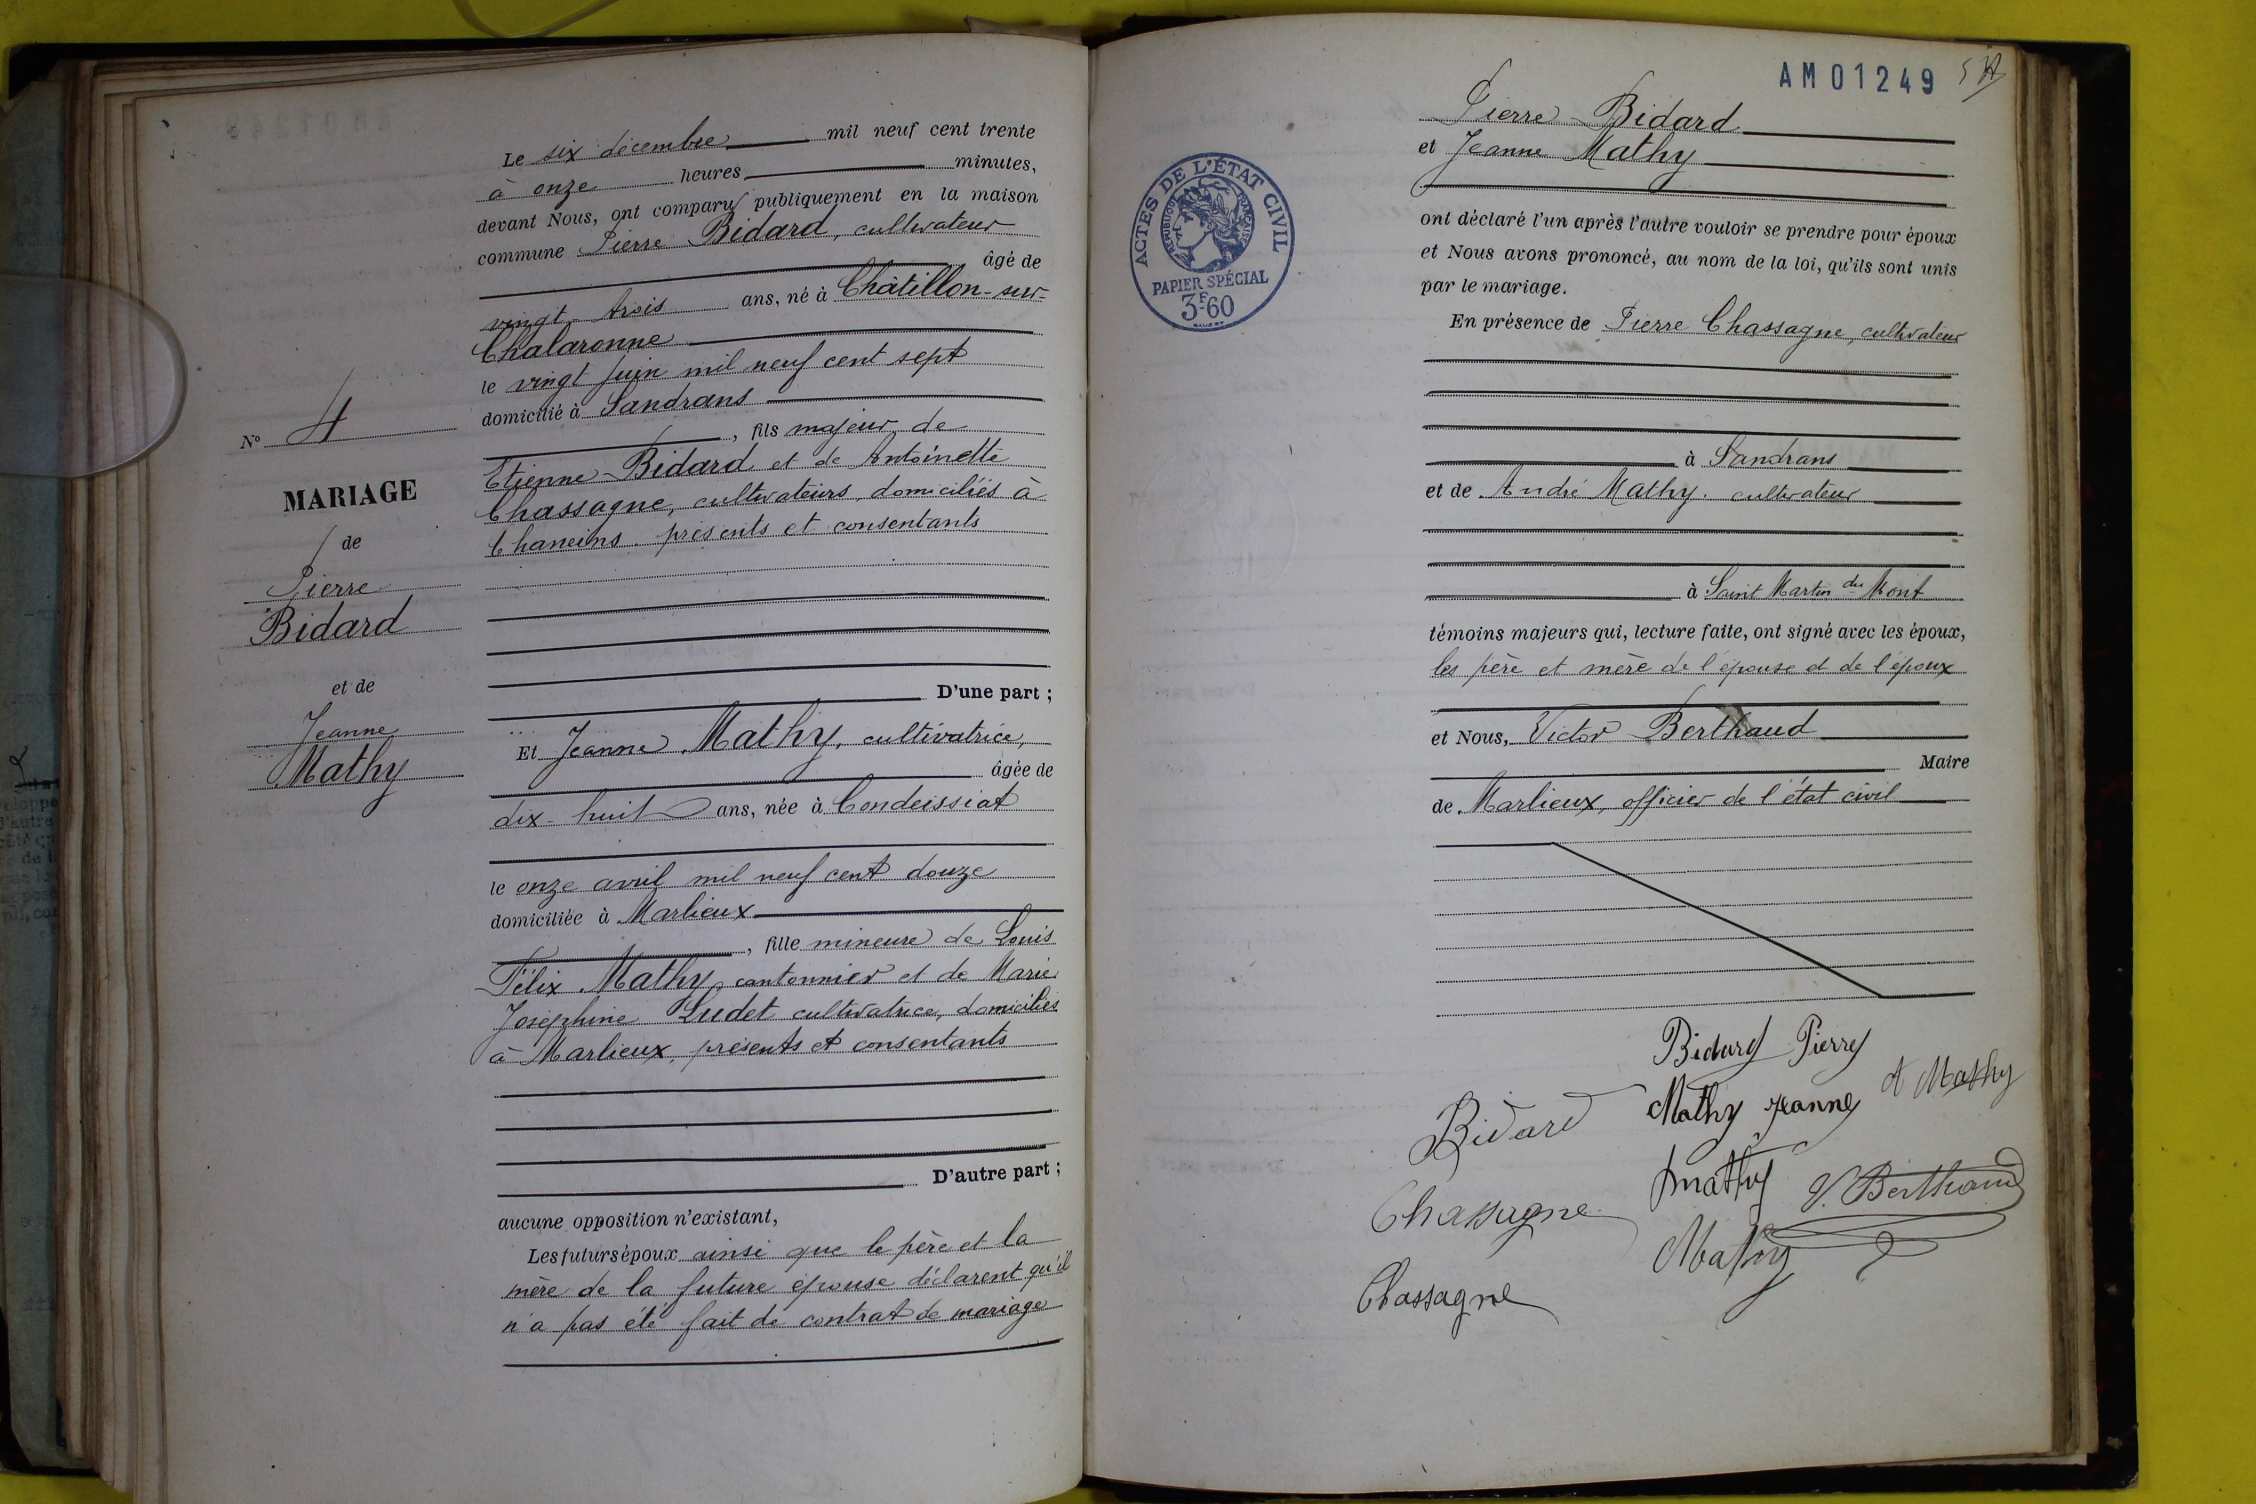 N° 4
MARIAGE
de
Pierre
Bidard
et de
Jeanne
Mathy
Le six décembre mil neuf cent trente
à onze heures minutes,
devant Nous, ont comparu publiquement en la maison
commune Pierre Bidard, cultivateur
âgé de
vingt trois ans, né à Châtillon-sur-
Chalaronne
le vingt juin mil neuf cent sept
domicilié à Sandrans
, fils majeur de
Etienne Bidard et de Antoinette
Chassagne, cultivateurs, domiciliés à
Chaneins. présents et consentants
D'une part ;
Et Jeanne Mathy, cultivatrice,
âgée de
dix-huit ans, née à Condeissiat
le onze avril mil neuf cent douze
domiciliée à Marlieux
, fille mineure de Louis
Félix Mathy, cantonnier et de Marie
Joséphine Ludet cultivatrice, domiciliés
à Marlieux, présents et consentants
D'autre part ;
aucune opposition n'existant,
Les futurs époux ainsi que le père et la
mère de la future épouse déclarent qu'il
n'a pas été fait de contrat de mariage
AM01249
ACTES DE L'ÉTAT CIVIL
RÉPUBLIQUE FRANÇAISE
PAPIER SPÉCIAL
3F60
Pierre Bidard
et Jeanne Mathy
ont déclaré l'un après l'autre vouloir se prendre pour époux
et Nous avons prononcé, au nom de la loi, qu'ils sont unis
par le mariage.
En présence de Pierre Chassagne, cultivateur
à Sandrans
et de André Mathy. cultivateur
à Saint Martin du Mont
témoins majeurs qui, lecture faite, ont signé avec les époux,
les père et mère de l'épouse et de l'époux
et Nous, Victor Berthaud
Maire
de Marlieux, officier de l'état civil
Bidard Pierre
Mathy Jeanne A Mathy
Bidard
Mathy V. Berthaud
Chassagne
Mathy
Chassagne